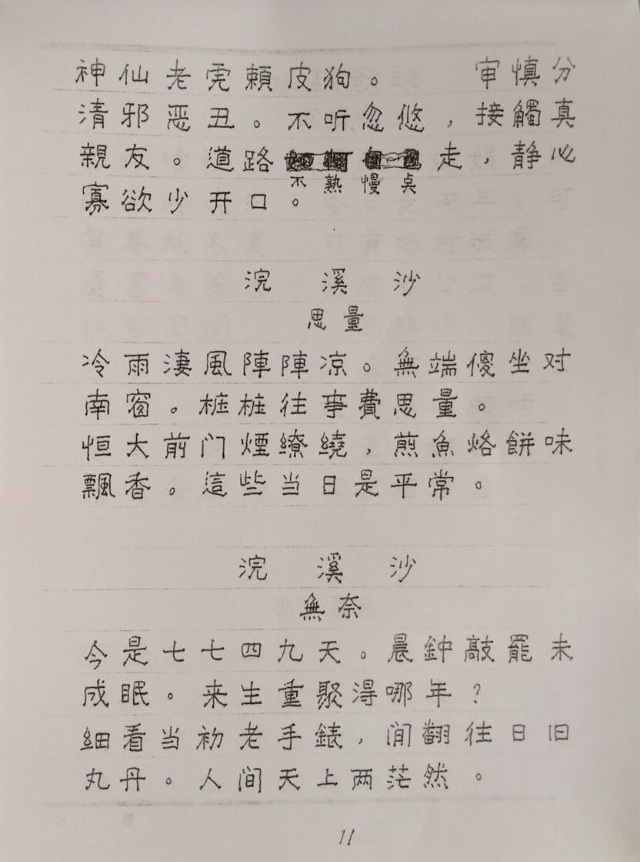 神仙老虎賴皮狗。 审慎分
清邪恶丑。不听忽悠，接觸真
親友。道路不熟慢点走，静心
寡欲少开口。
浣溪沙
思量
冷雨淒風陣陣凉。無端傻坐对
南窗。桩桩往事費思量。
恒大前门煙繚繞，煎魚烙餅味
飄香。這些当日是平常。
浣溪沙
無奈
今是七七四九天。晨鈡敲罷未
成眠。来生重聚得哪年？
细看当初老手錶，闲翻往日旧
丸丹。人间天上两茫然。
11